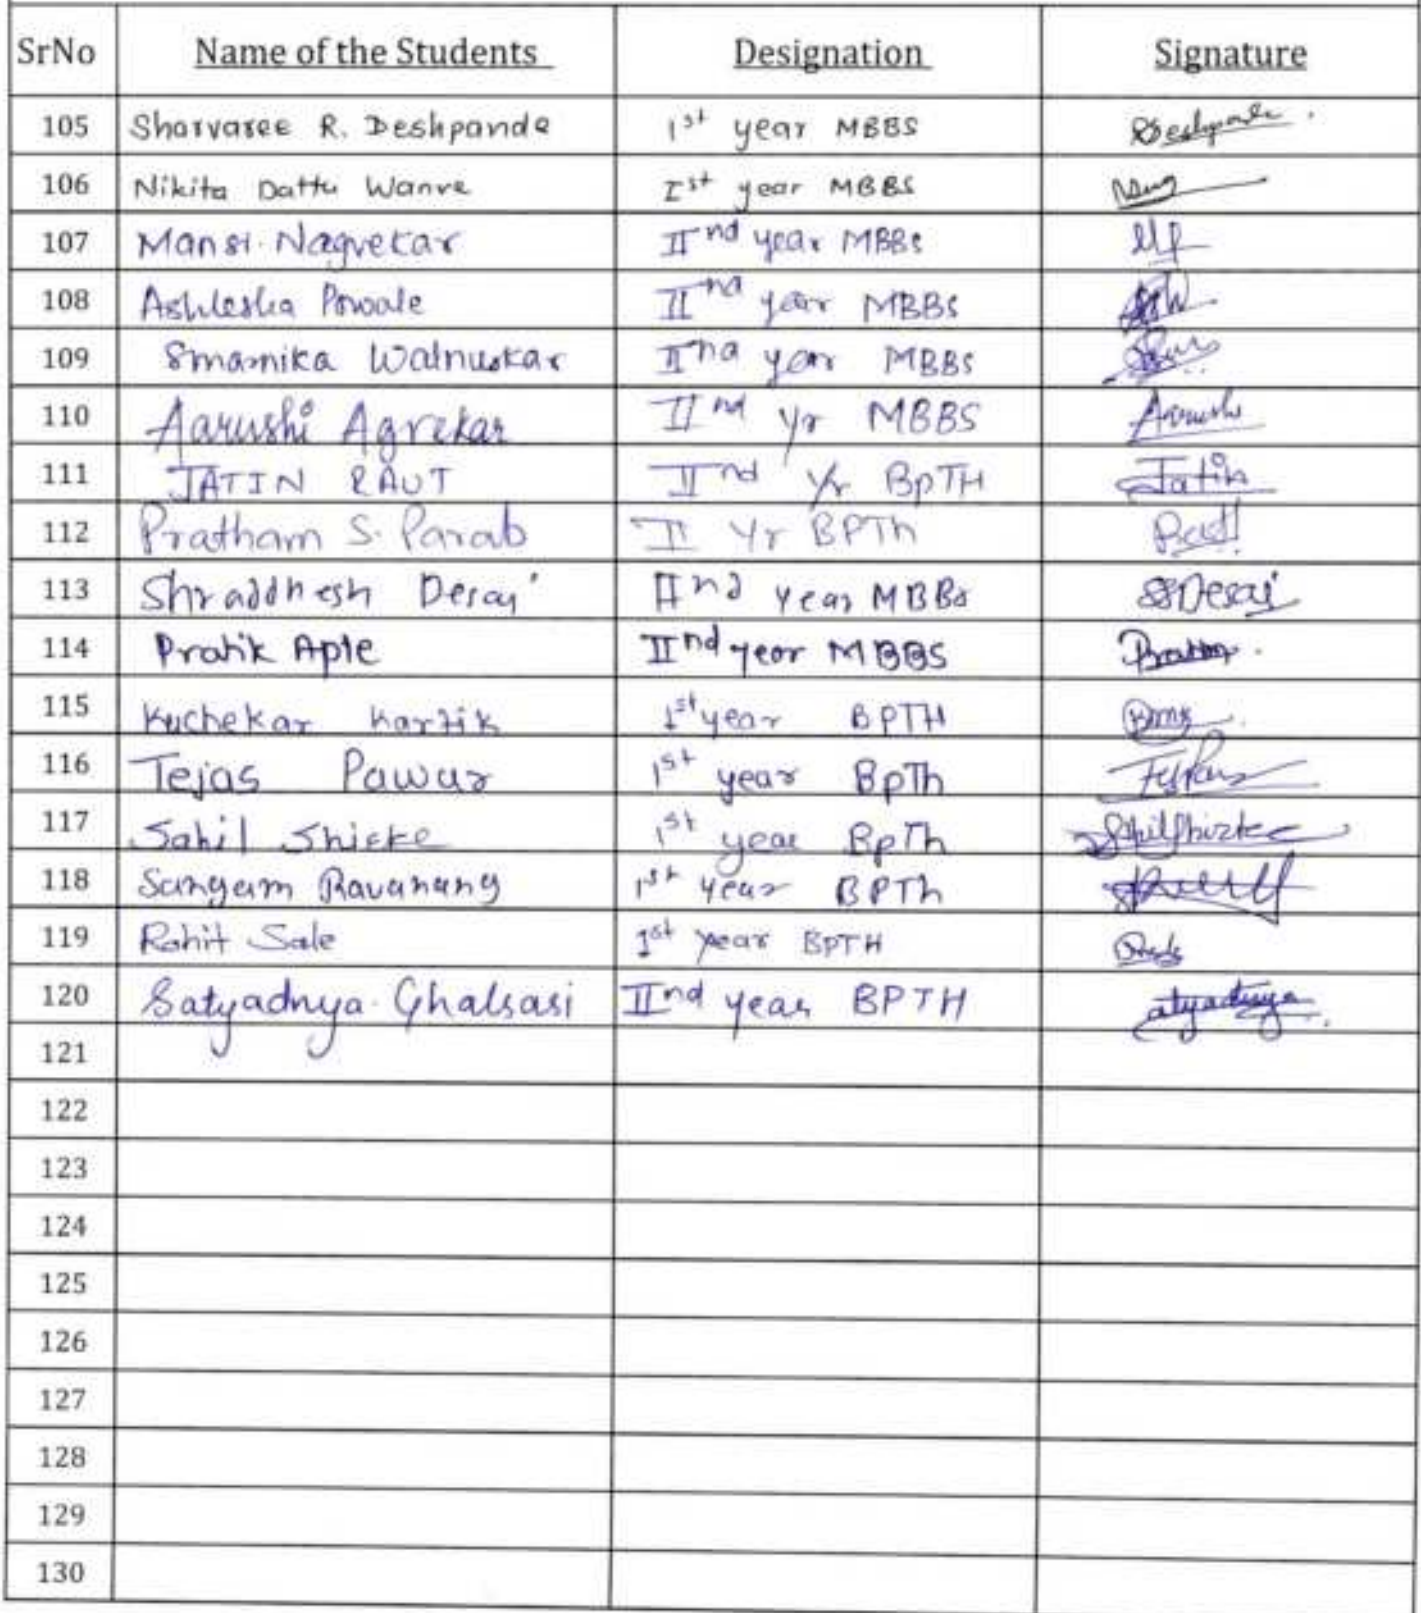 SrNo Name of the Students Designation Signature
105 Sharvaree R. Deshpande 1st year MBBS Deshpande
106 Nikita Dattu Wanve Ist year MBBS
107 Mansi Nagvekar IInd year MBBS
108 Ashlesha Powale IInd year MBBS
109 IInd year MBBS
110 Aarushi Agrekar IInd Yr MBBS Aarushi
111 JATIN RAUT IInd Yr BPTH Jatin
112 Pratham S. Parab II Yr BPTh
113 Shraddhesh Desai IInd year MBBS SSDesai
114 Pratik Apte IInd year MBBS
115 Kuchekar Kartik 1st year BPTH
116 Tejas Pawar 1st year BpTh
117 Sahil Shirke 1st year BpTh
118 Sangam Ravanang 1st year BPTh
119 Rohit Sale 1st year BPTH
120 Satyadnya Ghalsasi IInd year BPTH
121
122
123
124
125
126
127
128
129
130